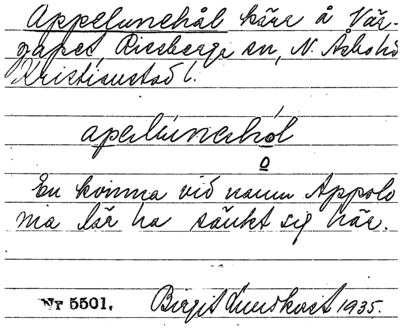 Appelunehål kärr å Vär-
gapet Riseberga sn, N. Åsbo hd
Kristianstad l.
apelúnerhól
o
En kvinna vid namn Appolo
nia lär ha sänkt sig här.
Nr 5501. Birgit Lundkvist 1935.